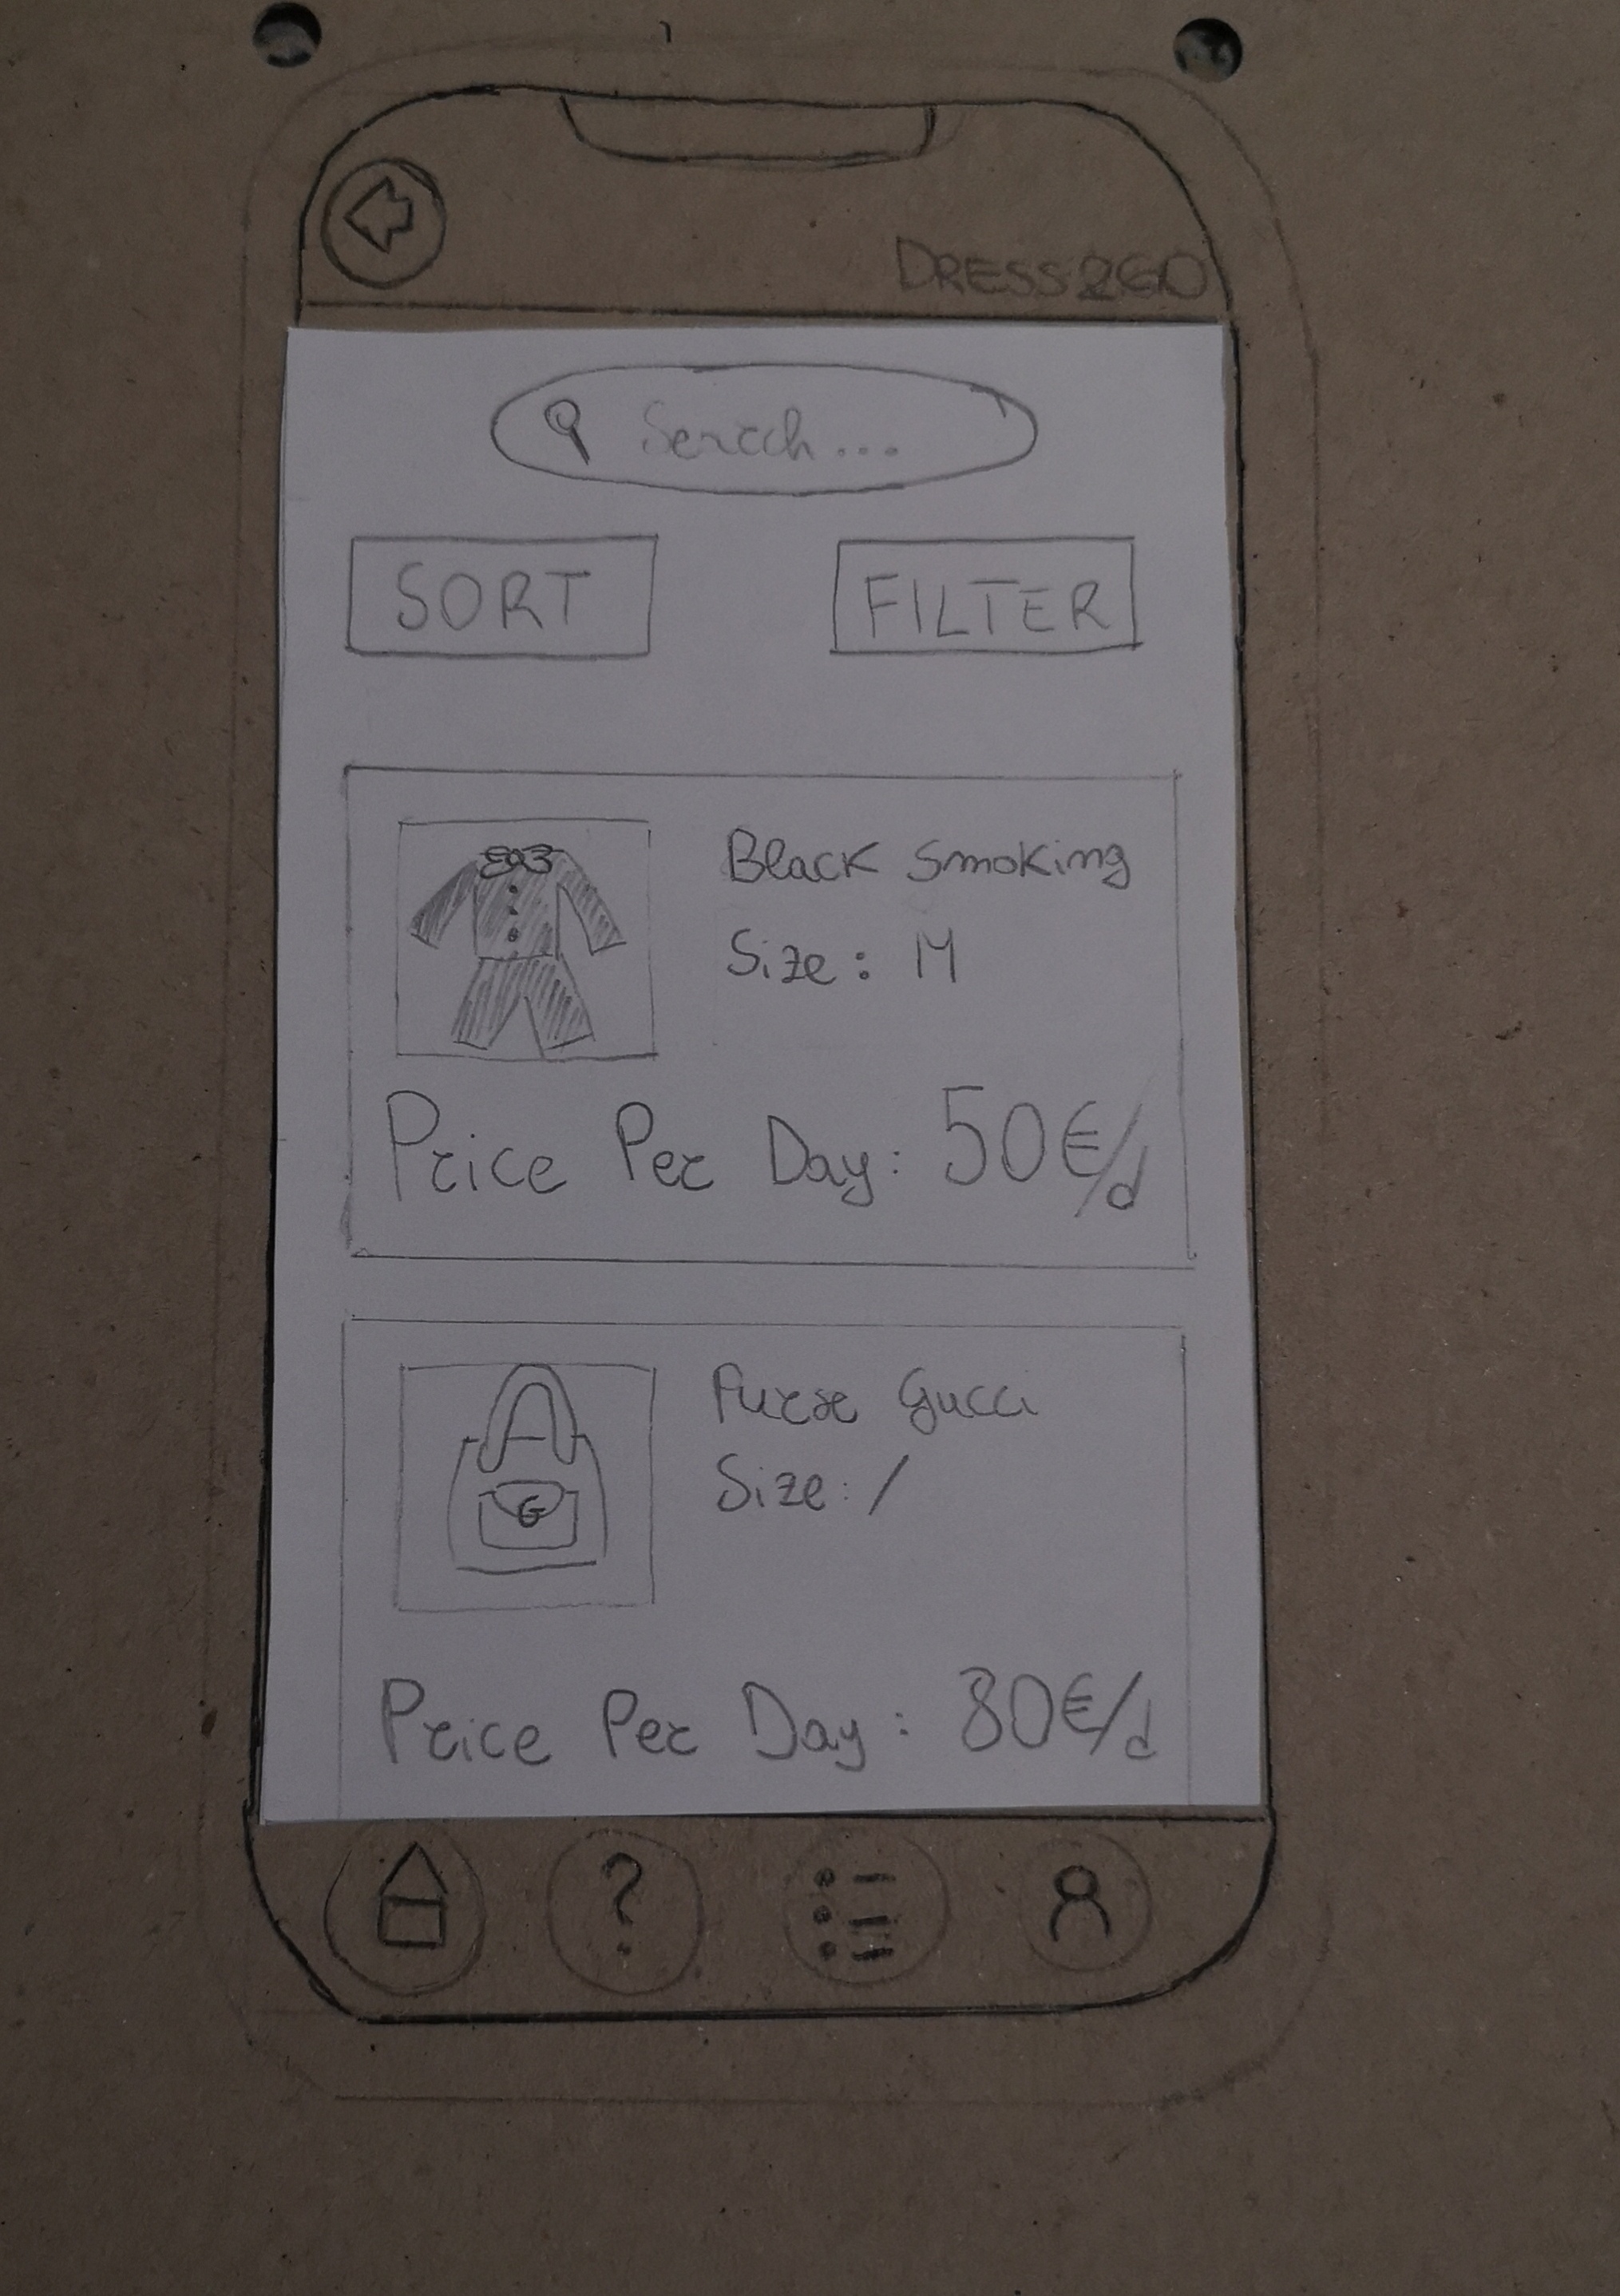 DRESS2GO
Serch...
SORT
FILTER
Black Smoking
Size: M
Price Per Day: 50€/d
Purse Gucci
Size: /
G
Price Per Day: 80€/d
?